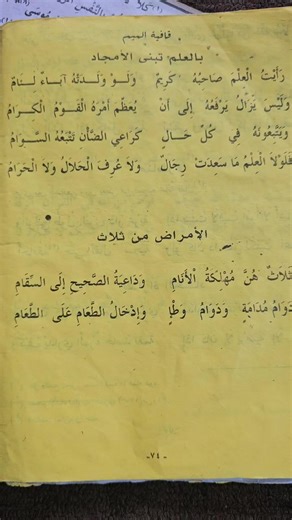 قافية الميم
بالعلم، تبنى الأمجاد
رَأَيْتُ الْعِلْمَ صَاحِبُهُ كَرِيمٌ وَلَوْ وَلَدَتْهُ آبَاءٌ لِئَامُ
وَلَيْسَ يَزَالُ يَرْفَعُهُ إِلَى أَنْ يُعَظِّمَ أَمْرَهُ الْقَوْمُ الْكِرَامُ
وَيَتَّبِعُونَهُ فِي كُلِّ حَالٍ كَرَاعِي الضَّأْنِ تَتْبَعُهُ السَّوَامُ
فَلَوْلاَ الْعِلْمُ مَا سَعِدَتْ رِجَالٌ وَلاَ عُرِفَ الْحَلاَلُ وَلاَ الْحَرَامُ
الأمراض من ثلاث
ثَلاَثٌ هُنَّ مُهْلِكَةُ الأَنَامِ وَدَاعِيَةُ الصَّحِيحِ إِلَى السِّقَامِ
دَوَامُ مُدَامَةٍ وَدَوَامُ وَطْءٍ وَإِدْخَالُ الطَّعَامِ عَلَى الطَّعَامِ
-٧٤-